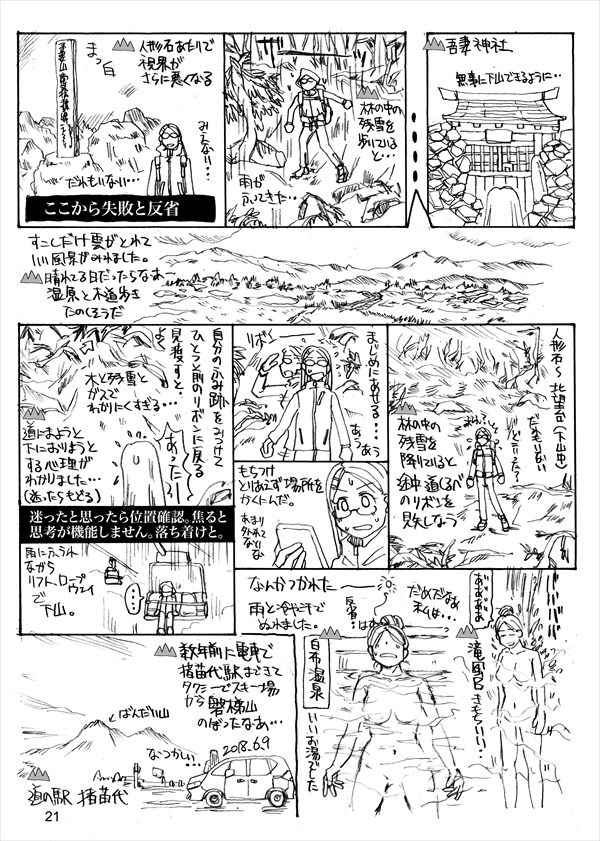 吾妻神社
無事に下山できるように…
林の中の
残雪を
歩いていると…
雨が
ふってきた…
人形石あたりで
視界が
さらに悪くなる
まっ白
みえない…
だれもいない…
ここから失敗と反省
すこしだけ雲がとれて
いい風景がみれました。
晴れてる日だったらなあ〜
湿原と木道歩き
たのしそうだ
人形石〜北望台(下山中)
だれもいない
どこいった?
林の中の
残雪を
降りていると
途中道しるべ
のリボンを
見失しなう
まじめにあせる…
リボ〜ン
あうあう
もちつけ
とりあえず場所を
かくにんだ。
あまり
外れて
ないな
自分のふみ跡をみつけて
ひとつ前のリボンに戻る
見渡すと…
あった〜!
木と残雪と
ガスで
わかりにくすぎる…
道にまようと
下におりようと
する心理が
わかりました…
(迷ったらもどる)
迷ったと思ったら位置確認。焦ると
思考が機能しません。落ち着けと。
雨にふられ
ながら
リフト、ロープ
ウェイ
で
下山。
なんかつかれた〜
雨と冷やせで
ぬれました。
ああああああ
滝風呂きもちいい…
だめだなあ
私は…
反省
白布温泉
いいお湯でした
数年前に電車で
猪苗代駅まできて
タクシーでスキー場
から磐梯山
のぼったなあ…
ばんだい山
なつかしい…
2018.6.9
道の駅 猪苗代
21